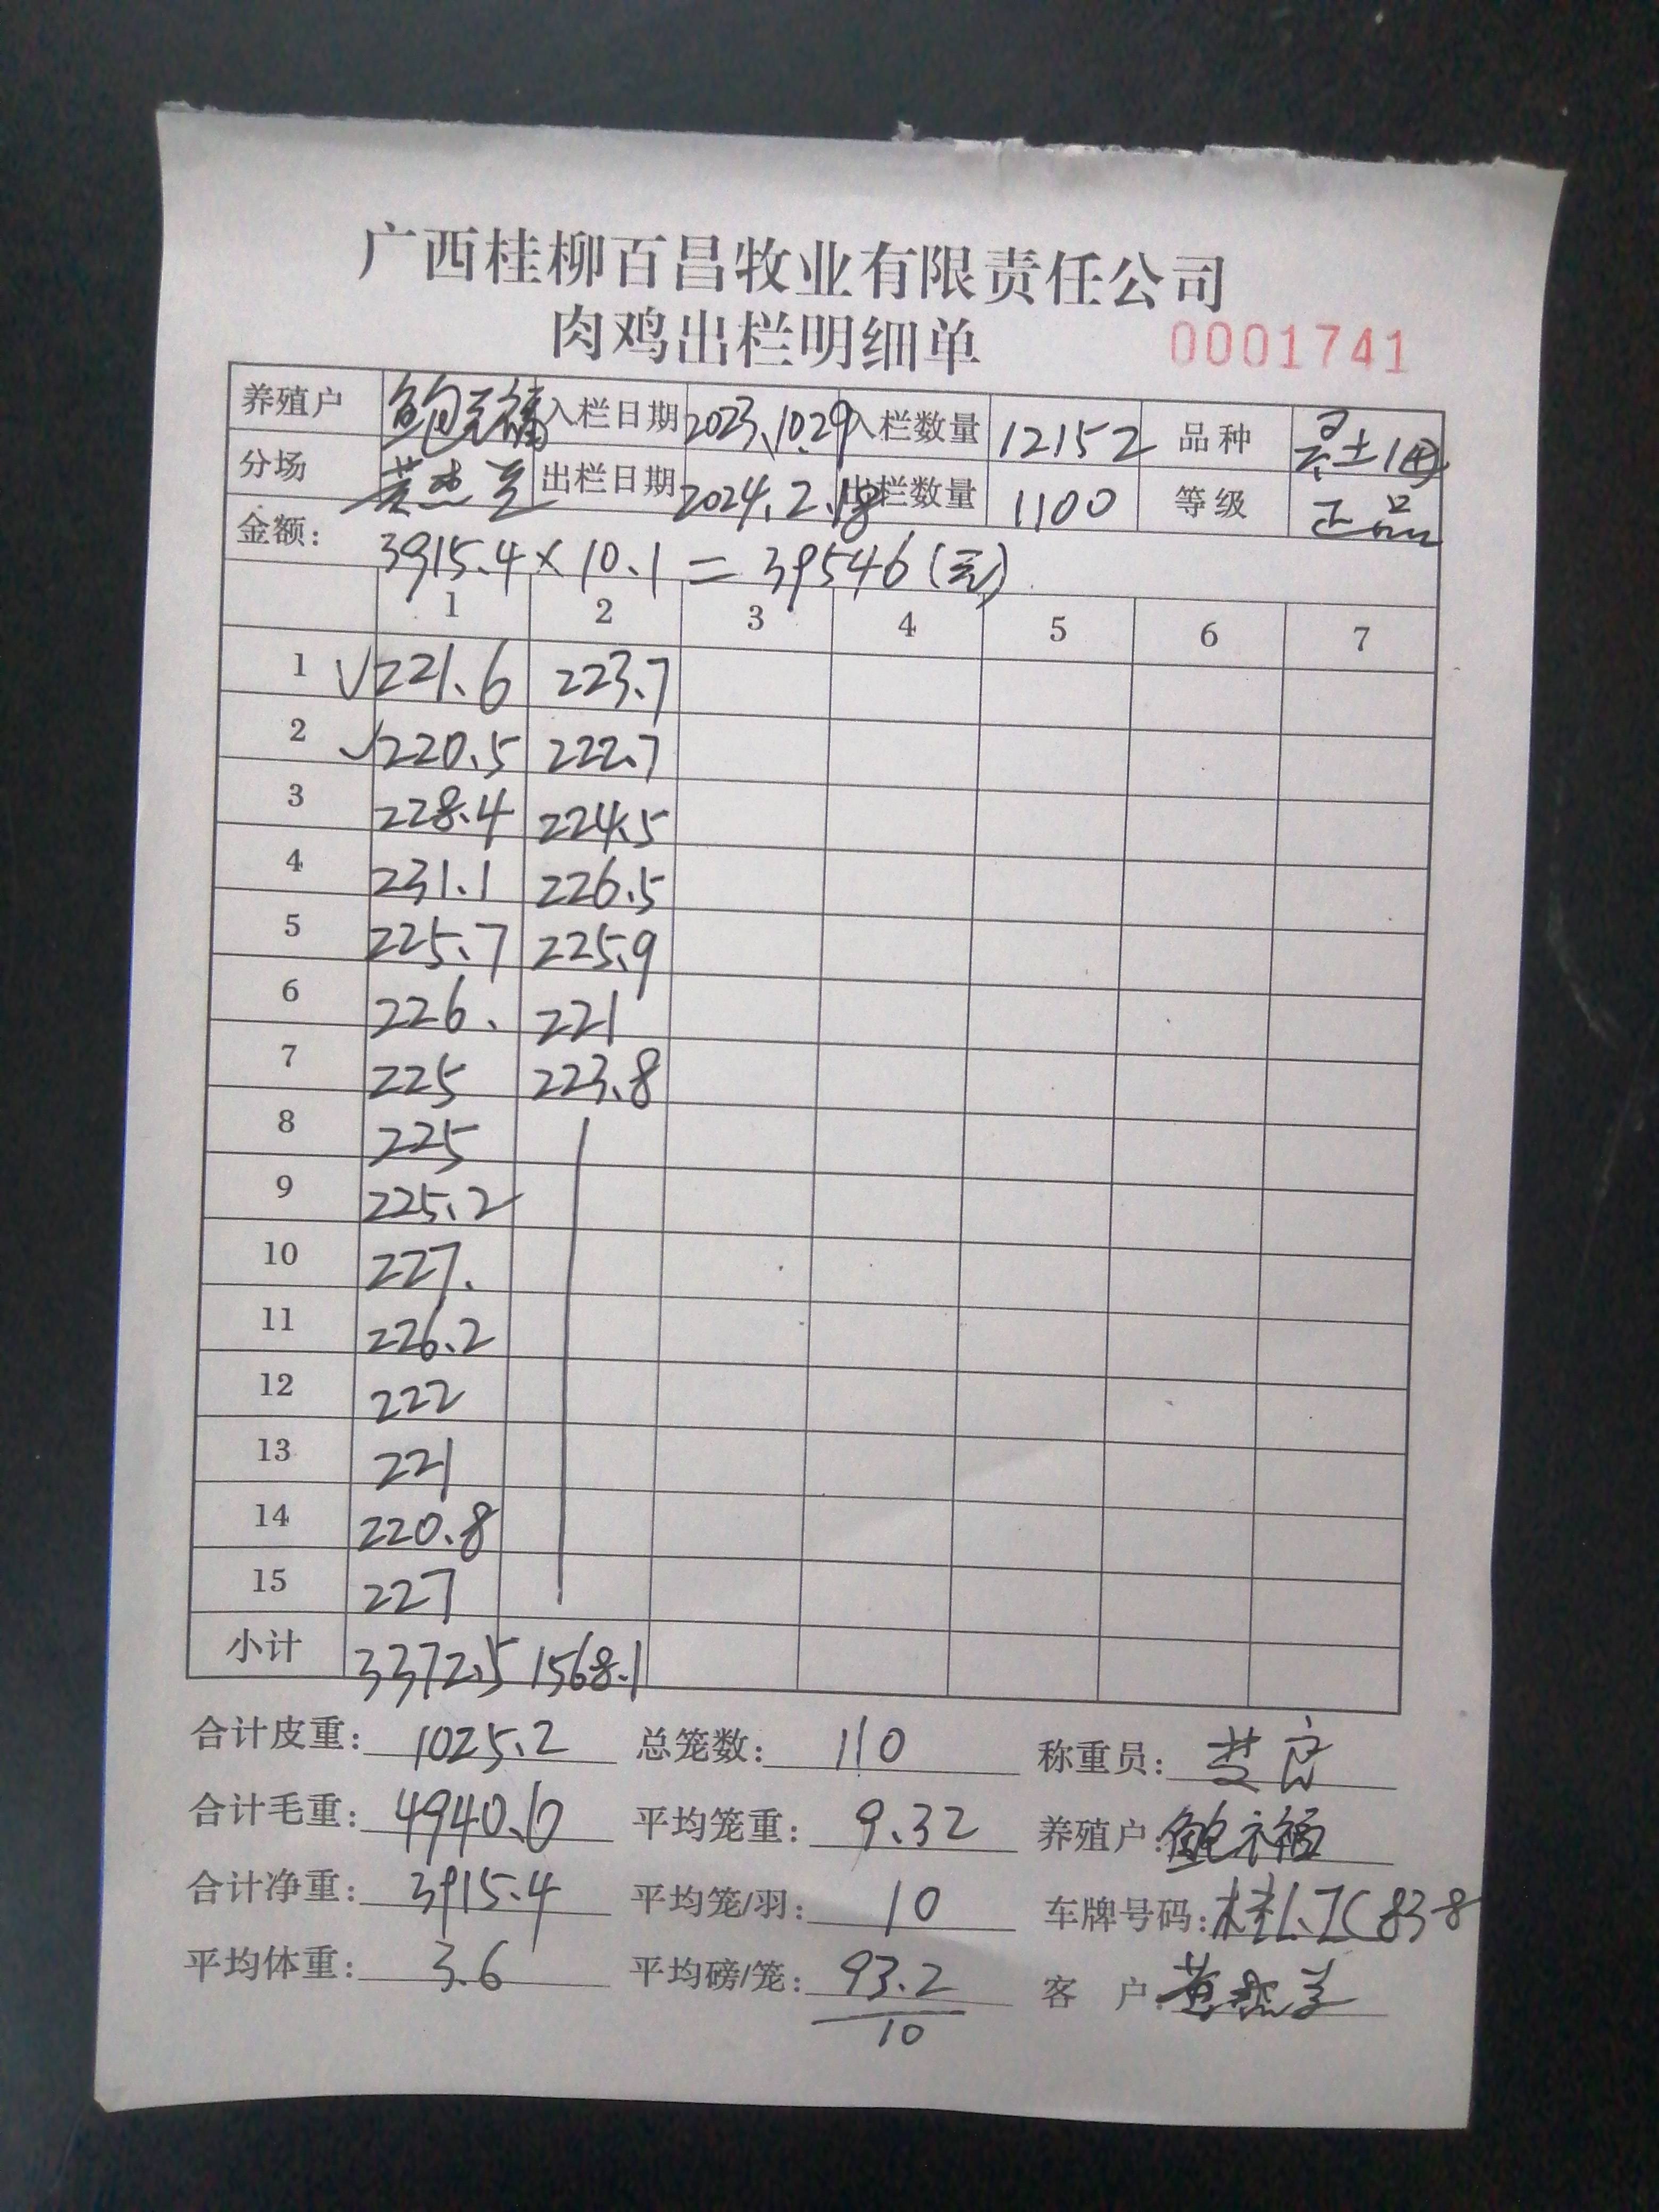 广西桂柳百昌牧业有限责任公司
肉鸡出栏明细单 0001741
养殖户 入栏日期 2023.10.29 入栏数量 12152 品种
分场 出栏日期 2024.2.18 出栏数量 1100 等级 正品
金额: 3915.4 × 10.1 = 39546 (元)
1 2 3 4 5 6 7
1 √221.6 223.7
2 √220.5 222.7
3 228.4 224.5
4 231.1 226.5
5 225.7 225.9
6 226. 221
7 225 223.8
8 225
9 225.2
10 227.
11 226.2
12 222
13 221
14 220.8
15 227
小计 3372.5 1568.1
合计皮重: 1025.2 总笼数: 110 称重员:
合计毛重: 4940.6 平均笼重: 9.32 养殖户:
合计净重: 3915.4 平均笼/羽: 10 车牌号码:
平均体重: 3.6 平均磅/笼: 93.2 客 户:
10